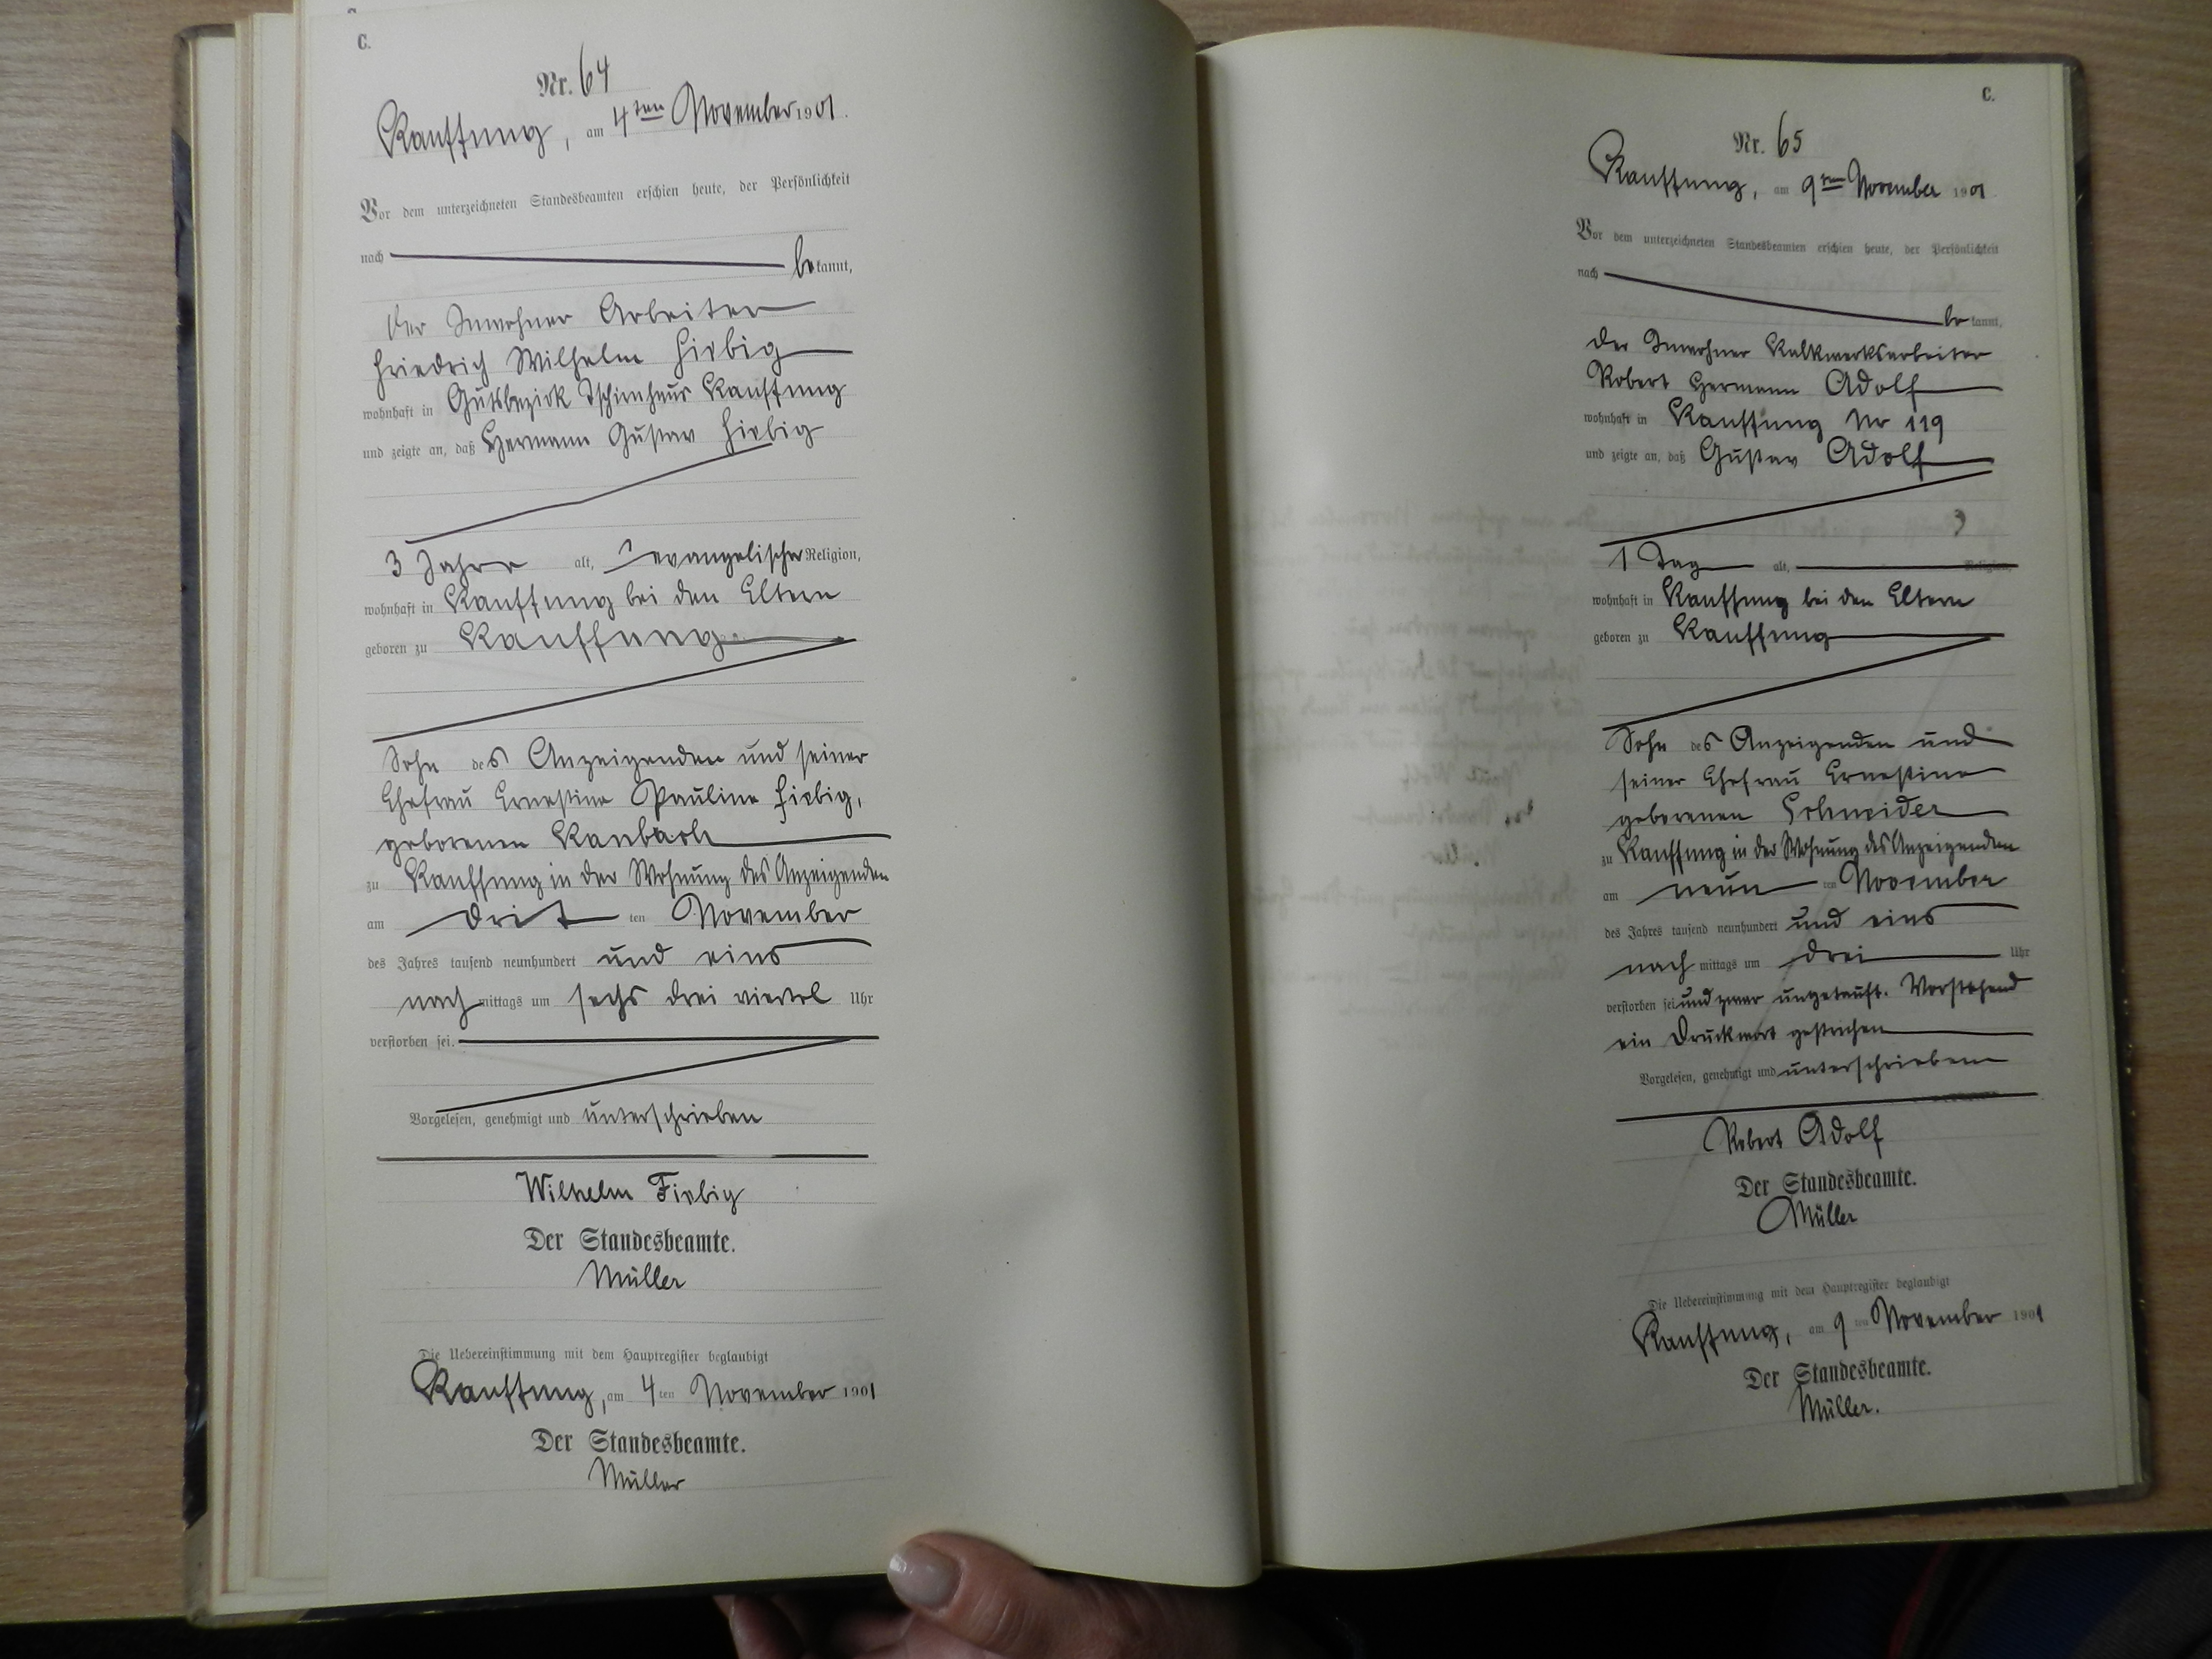 C.
Nr. 64
Kauffung, am 4ten November 1901.
Vor dem unterzeichneten Standesbeamten erschien heute, der Persönlichkeit
nach bekannt,
der Inwohner Arbeiter
Friedrich Wilhelm Fiebig
wohnhaft in Gutsbezirk Tschirnhaus Kauffung
und zeigte an, daß Hermann Gustav Fiebig
3 Jahre alt, evangelischer Religion,
wohnhaft in Kauffung bei den Eltern
geboren zu Kauffung
Sohn des Anzeigenden und seiner
Ehefrau Ernestine Pauline Fiebig,
geborenen Kanbach
zu Kauffung in der Wohnung des Anzeigenden
am dritten November
des Jahres tausend neunhundert und eins
nachmittags um sechs drei viertel Uhr
verstorben sei.
Vorgelesen, genehmigt und unterschrieben
Wilhelm Fiebig
Der Standesbeamte.
Müller
Die Uebereinstimmung mit dem Hauptregister beglaubigt
Kauffung, am 4ten November 1901
Der Standesbeamte.
Müller
C.
Nr. 65
Kauffung, am 9ten November 1901.
Vor dem unterzeichneten Standesbeamten erschien heute, der Persönlichkeit
nach bekannt,
der Inwohner Kalkwerksarbeiter
Robert Hermann Adolf
wohnhaft in Kauffung Nr 119
und zeigte an, daß Gustav Adolf
1 Tag alt, Religion,
wohnhaft in Kauffung bei den Eltern
geboren zu Kauffung
Sohn des Anzeigenden und
seiner Ehefrau Ernestine
geborenen Schneider
zu Kauffung in der Wohnung des Anzeigenden
am neunten November
des Jahres tausend neunhundert und eins
nachmittags um drei Uhr
verstorben sei und zwar ungetauft. Vorstehend
ein Druckwort gestrichen
Vorgelesen, genehmigt und unterschrieben
Robert Adolf
Der Standesbeamte.
Müller
Die Uebereinstimmung mit dem Hauptregister beglaubigt
Kauffung, am 9ten November 1901
Der Standesbeamte.
Müller.